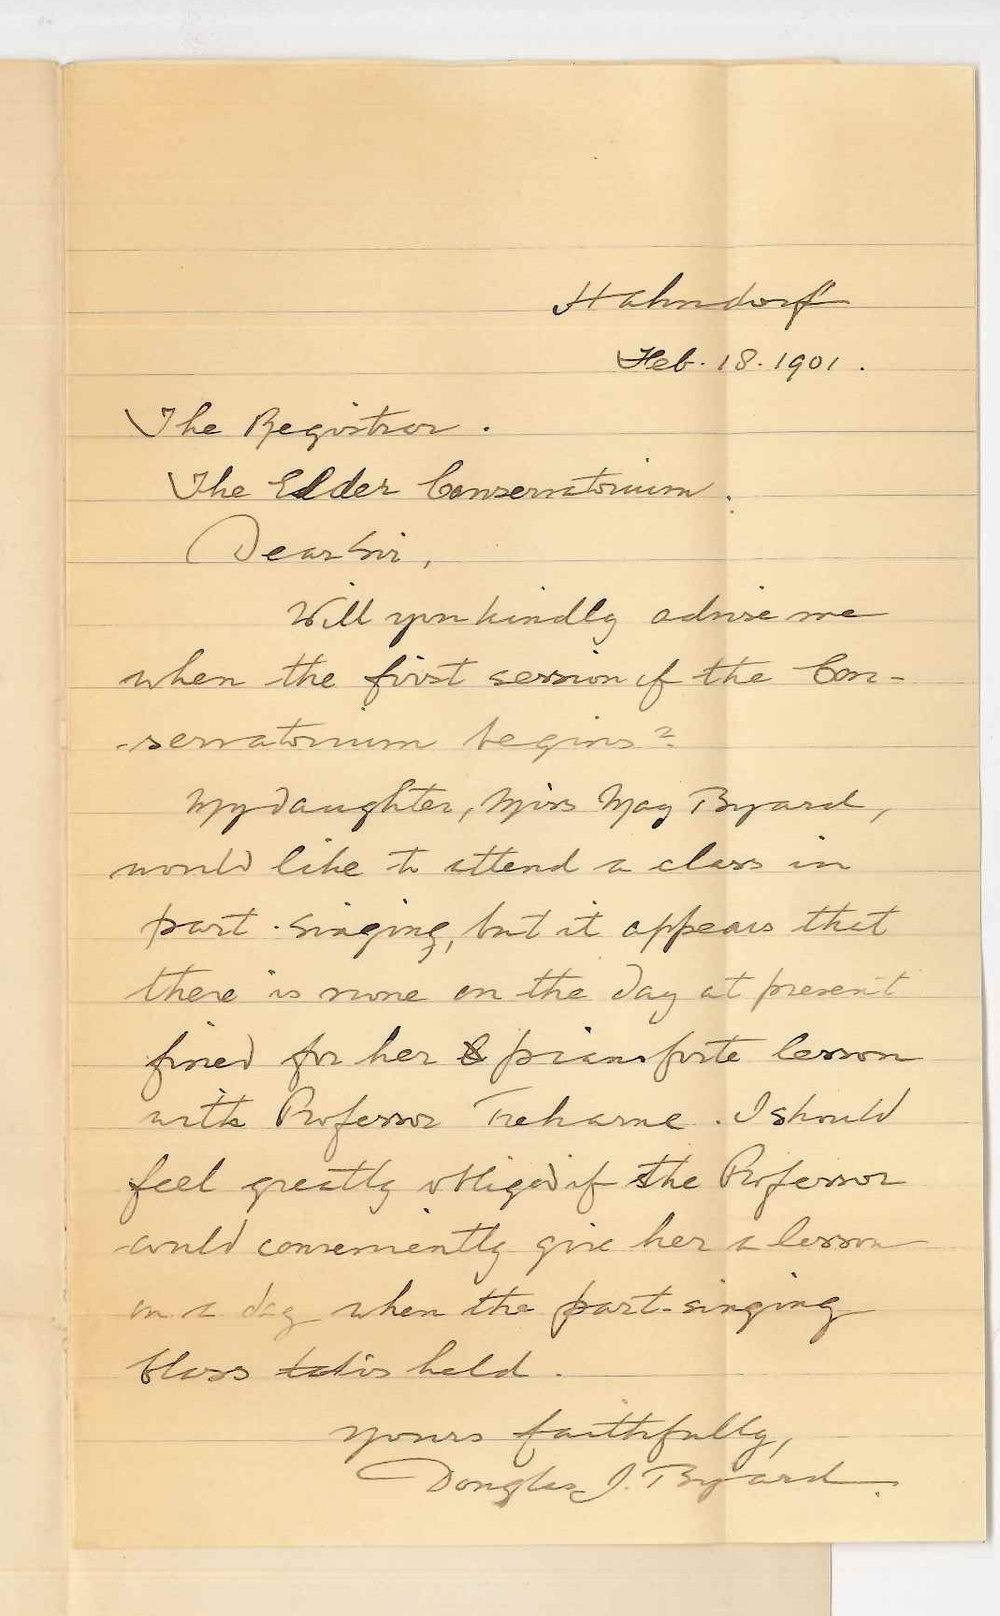 Hahndorf
Feb. 18. 1901.
The Registrar.
The Elder Conservatorium.
Dear Sir,
Will you kindly advise me
when the first session of the Con-
-servatorium begins?
My daughter, Miss May Byard,
would like to attend a class in
part-singing, but it appears that
there is none on the day at present
fixed for her pianoforte lesson
with Professor Treharne. I should
feel greatly obliged if the Professor
could conveniently give her a lesson
on a day when the part-singing
Class is held.
Yours faithfully,
Douglas J. Byard.